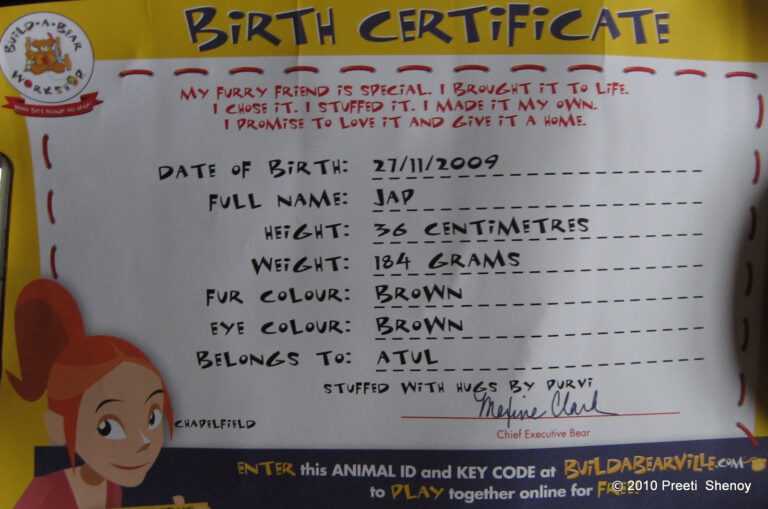 BUILD-A-BEAR
WORKSHOP
BIRTH CERTIFICATE
MY FURRY FRIEND IS SPECIAL. I BROUGHT IT TO LIFE.
I CHOSE IT. I STUFFED IT. I MADE IT MY OWN.
I PROMISE TO LOVE IT AND GIVE IT A HOME.
DATE OF BIRTH: 27/11/2009
FULL NAME: JAP
HEIGHT: 36 CENTIMETRES
WEIGHT: 184 GRAMS
FUR COLOUR: BROWN
EYE COLOUR: BROWN
BELONGS TO: ATUL
STUFFED WITH HUGS BY PURVI
Maxine Clark
CHAPELFIELD
Chief Executive Bear
ENTER this ANIMAL ID and KEY CODE at BUILDABEARVILLE.COM
to PLAY together online for FREE!
© 2010 Preeti Shenoy